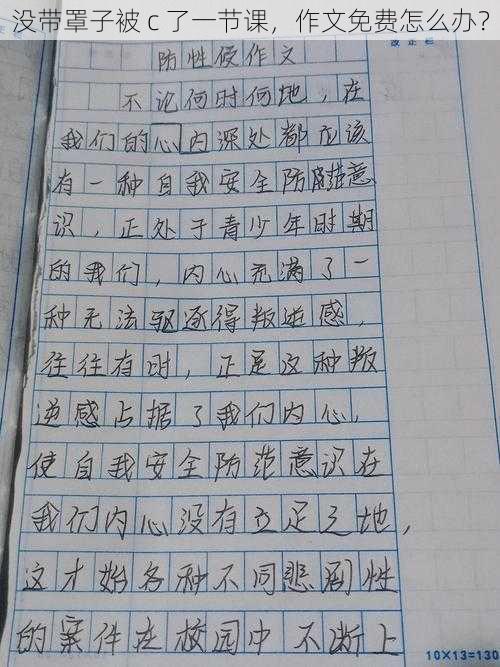 没带罩子被 c 了一节课，作文免费怎么办？
防性侵作文
不论何时何地，在
我们的心内深处都应该
有一种自我安全防范意
识，正处于青少年时期
的我们，内心充满了一
种无法驱逐得叛逆感，
往往有时，正是这种叛
逆感占据了我们内心，
使自我安全防范意识在
我们内心没有立足之地，
这才始各种不同悲剧性
的案件在校园中不断上
10×13=130